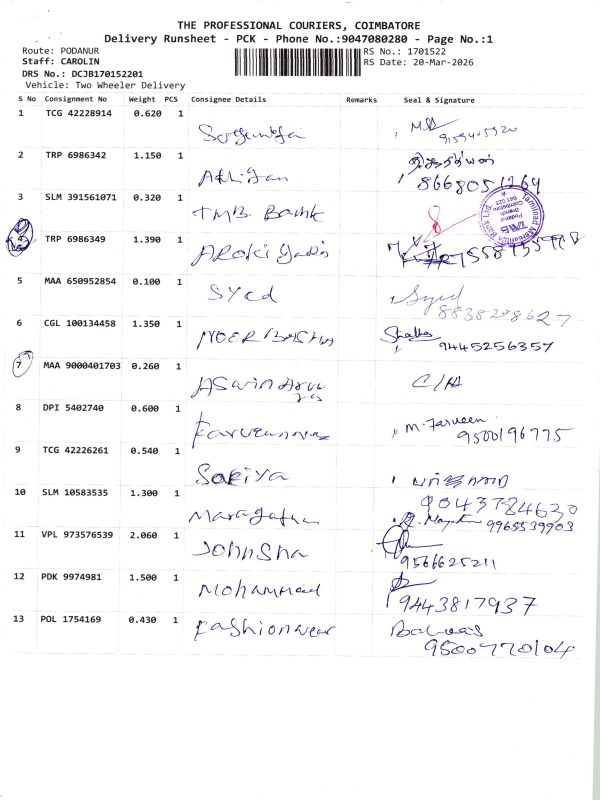 THE PROFESSIONAL COURIERS, COIMBATORE
Delivery Runsheet - PCK - Phone No.:9047080280 - Page No.:1
Route: PODANUR
RS No.: 1701522
Staff: CAROLIN
RS Date: 20-Mar-2026
DRS No.: DCJB170152201
Vehicle: Two Wheeler Delivery
S No Consignment No Weight PCS Consignee Details Remarks Seal & Signature
1 TCG 42228914 0.620 1
2 TRP 6986342 1.150 1
8668051269
3 SLM 391561071 0.320 1 TMB. Bank
Tamilnad Mercantile Bank Ltd.
TMB
Podanur
Branch
Coimbatore
641 023
4 TRP 6986349 1.390 1
5 MAA 650952854 0.100 1 Syed Syed
8838298627
6 CGL 100134458 1.350 1 NOER BASHA
9445256357
7 MAA 9000401703 0.260 1 C/A
8 DPI 5402740 0.600 1 M. Farveen
9500196775
9 TCG 42226261 0.540 1 Sakiya
9043784630
10 SLM 10583535 1.300 1
9965539903
11 VPL 973576539 2.060 1 Johnsha
9566625211
12 PDK 9974981 1.500 1 Mohammad
9443817937
13 POL 1754169 0.430 1 Fashionwear
9500770104